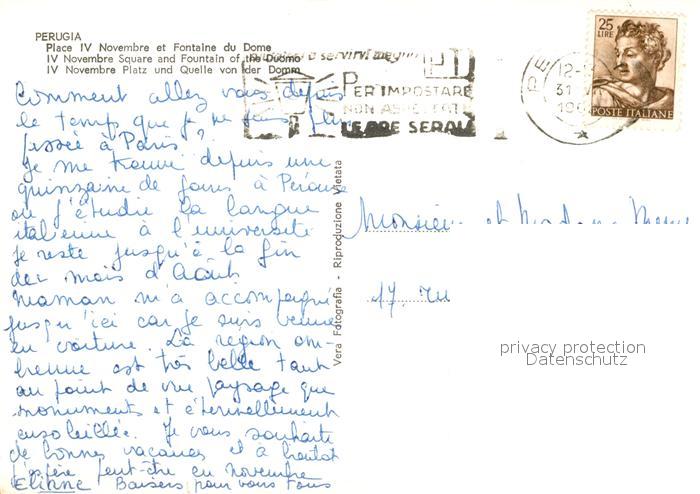 PERUGIA
Place IV Novembre et Fontaine du Dome
IV Novembre Square and Fountain of the Duomo
IV Novembre Platz und Quelle von der Domm
servirvi meglio
PER IMPOSTARE
NON ASPETTATE
LE ORE SERALI
25
LIRE
POSTE ITALIANE
PE
12-
31
19
Comment allez vous depuis
le temps que je ne suis plus
passée à Paris ?
Je me trouve depuis une
quinzaine de jours à Pérouse
où j'étudie la langue
italienne à l'université
je reste jusqu'à la fin
du mois d'Août
Maman m'a accompagné
jusqu'ici car je suis venue
en voiture. La région om-
brienne est très belle tant
au point de vue paysage que
monuments et éternellement
ensoleillée. Je vous souhaite
de bonnes vacances et à bientôt
j'espère peut-être en novembre
Eliane Baisers pour vous tous
Vera Fotografia - Riproduzione Vietata
Monsieur et Madame
17, ru
privacy protection
Datenschutz